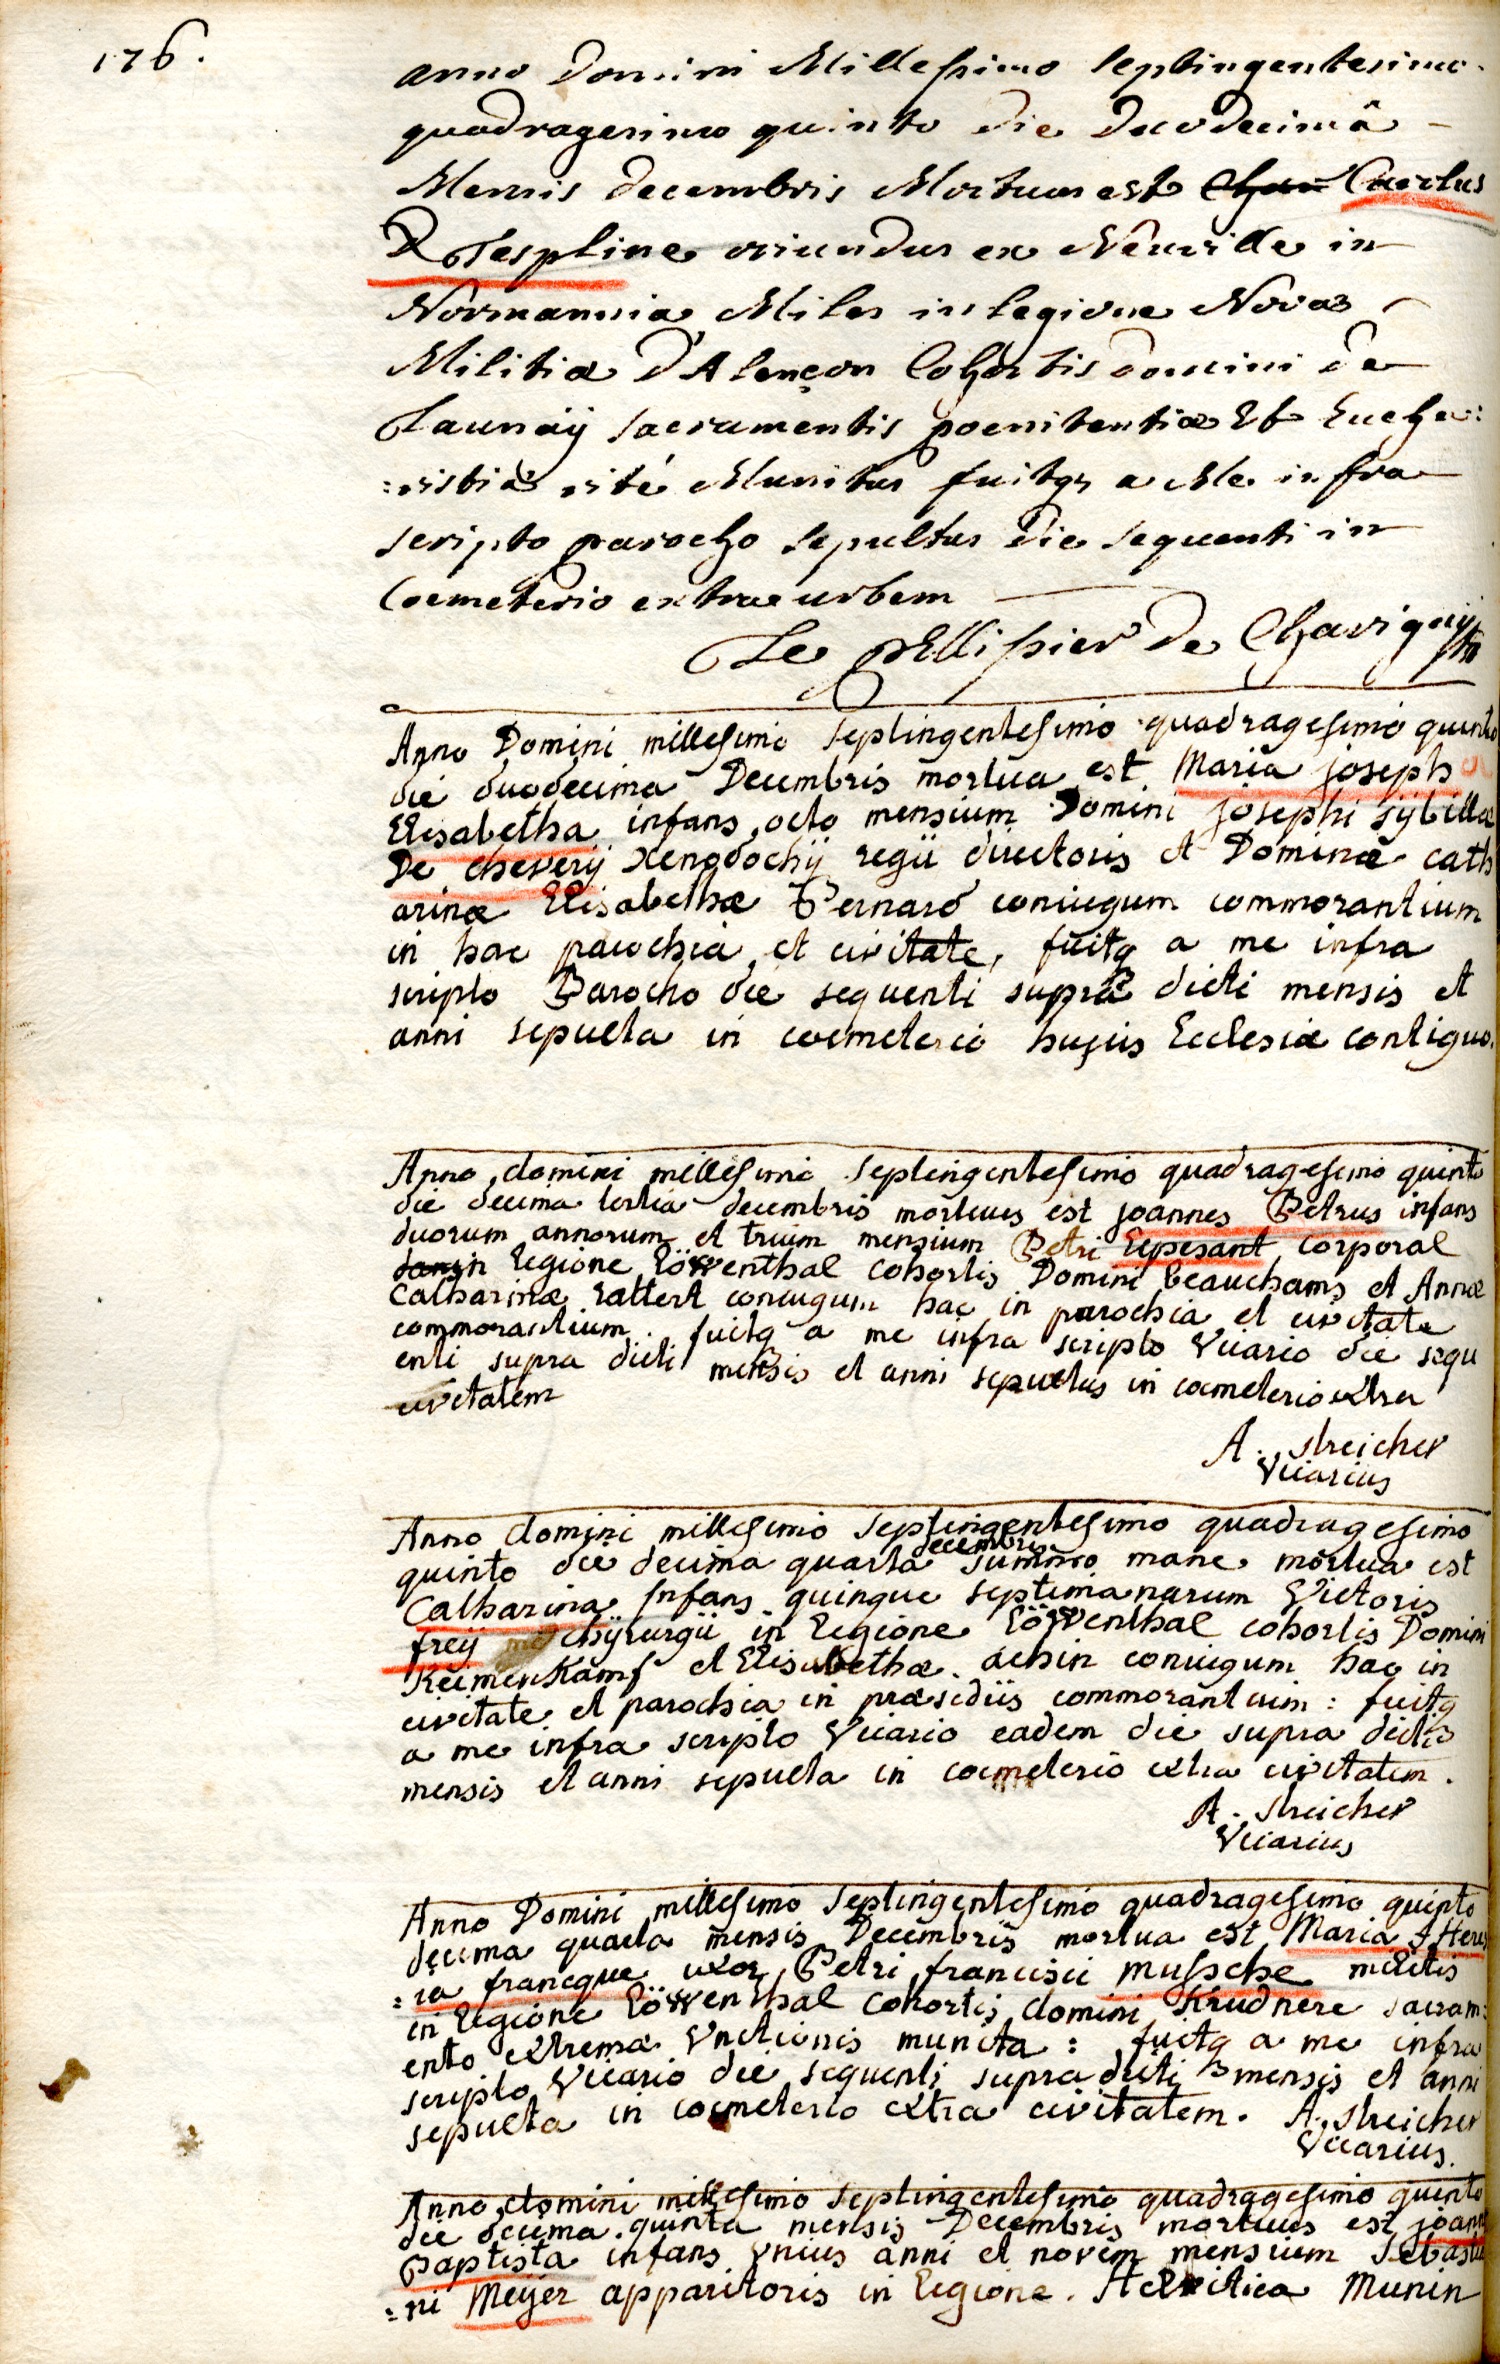 176.
anno Domini Millessimo septingentesimo
quadragesimo quinto die duodecimâ
Mensis decembris Mortuus est Carolus
Tespline oriundus ex Neuville in
Normannia Miles in legione Novæ
Militiæ D'Alençon Cohortis domini de
Launaÿ sacramentis poenitentiæ Et Eucha:
:ristiæ rité Munitus fuitq; a Me infra
scripto parocho sepultus die sequenti in
Coemeterio extra urbem
Le pellissier de Chavignÿ
Anno Domini millesimo septingentesimo quadragesimo quinto
die duodecima Decembris mortua est Maria joseph
Elisabetha infans octo mensium Domini josephi sÿbillæ
De cheverÿ Xenodochÿ regii directoris et Dominæ cath
arinæ Elisabethæ Bernard coniugum commorantium
in hac parochia et civitate, fuitq a me infra
scripto Parocho die sequenti supra dicti mensis et
anni sepulta in coemeterio hujus Ecclesiæ contiguo.
Anno domini millesimo septingentesimo quadragesimo quinto
die decima tertia decembris mortuus est joannes Petrus infans
duorum annorum et trium mensium Petri Lepesant corporal
in legione Löwenthal cohortis Domini beauchams et Annæ
Catharinæ rattert coniugum hac in parochia et civitate
commorantium. fuitq a me infra scripto Vicario die sequ
enti supra dicti mensis et anni sepultus in coemeterio extra
civitatem
A. Streicher
Vicarius
Anno domini millesimo septingentesimo quadragesimo
quinto die decima quarta decembris summo mane mortua est
Catharina infans quinque septimanarum Victoris
freÿ chÿrurgii in legione Löwenthal cohortis Domini
Keimenkamf et Elisabethæ achin coniugum hac in
civitate et parochia in præsidiis commorantium : fuitq
a me infra scripto Vicario eadem die supra dictis
mensis et anni sepulta in coemeterio extra civitatem.
A. Streicher
Vicarius
Anno Domini millesimo septingentesimo quadragesimo quinto
decima quarta mensis Decembris mortua est Maria Theres
:ia francque uxor Petri francisci mussche militis
in legione Löwenthal cohortis domini Krudnere sacram:
ento extremæ Vnctionis munita : fuitq a me infra
scripto Vicario die sequenti supra dicti mensis et anni
sepulta in coemeterio extra civitatem. A. Streicher
Vicarius.
Anno domini millesimo septingentesimo quadragesimo quinto
die decima quinta mensis Decembris mortuus est joannes
Baptista infans Vnius anni et novem mensium Sebastia
:ni Meÿer apparitoris in legione Helvitica Munin